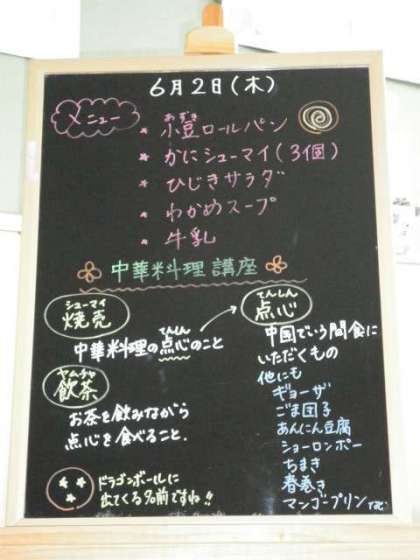 6月2日(木)
メニュー
あずき
* 小豆ロールパン
* かにシューマイ(3個)
* ひじきサラダ
* わかめスープ
* 牛乳
中華料理講座
シューマイ
焼売
てんしん
中華料理の点心のこと
ヤムチャ
飲茶
お茶を飲みながら
点心を食べること.
ドラゴンボールに
出てくる名前ですね!!
てんしん
点心
中国でいう間食に
いただくもの
他にも
ギョーザ
ごま団子
あんにん豆腐
ショーロンポー
ちまき
春巻き
マンゴープリン etc.